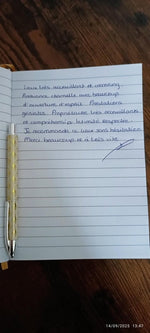 Lieux très accueillant et cocooning.
Ambiance charnelle avec beaucoup
d'ouverture d'esprit. Prestations
géniales. Propriétaires très accueillants
et compréhensifs. Intimité respectée.
Je recommande ce lieux sans hésitation
Merci beaucoup et à très vite
14/09/2025 13:47